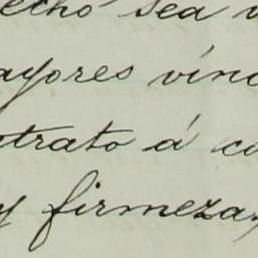 echo sea v
ayores vínc
trato á co
y firmeza,